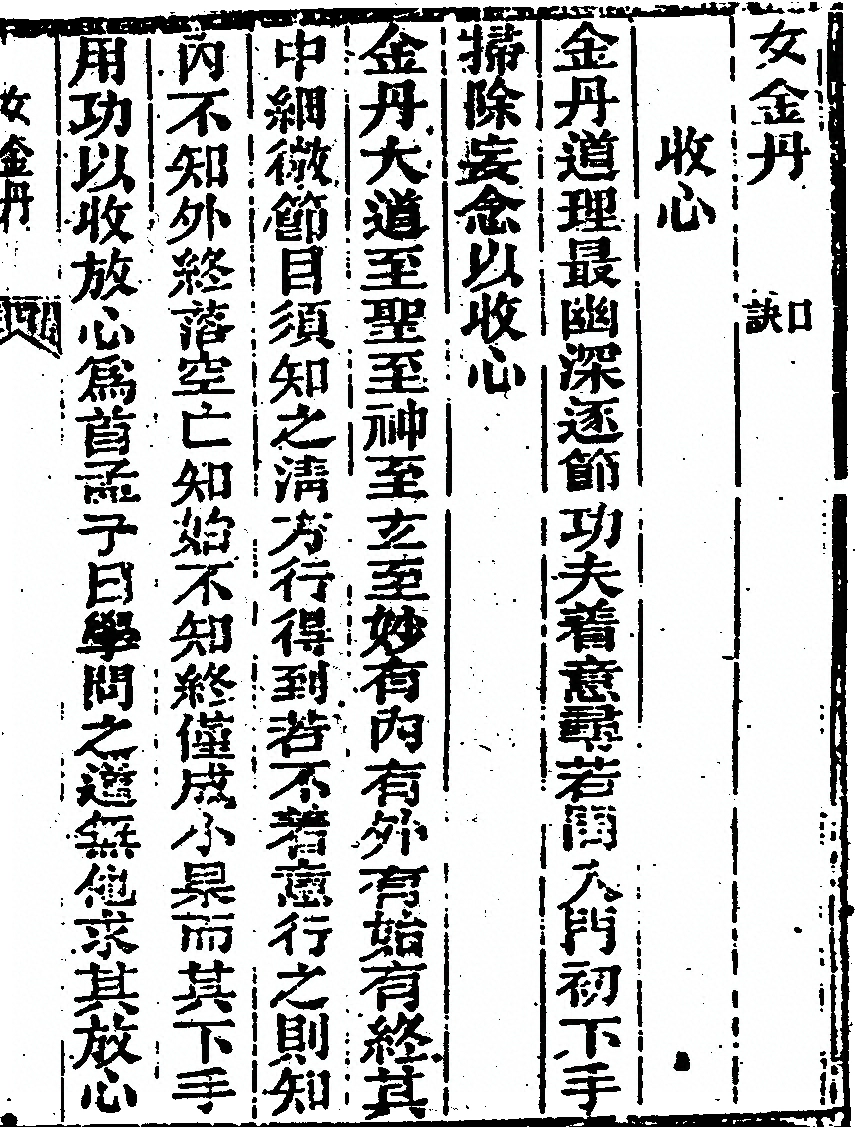 女金丹 口訣
收心
金丹道理最幽深逐節功夫着意尋若問入門初下手
掃除妄念以收心
金丹大道至聖至神至玄至妙有內有外有始有終其
中細微節目須知之清方行得到若不着意行之則知
內不知外終落空亡知始不知終僅成小果而其下手
用功以收放心為首孟子曰學問之道無他求其放心
女金丹